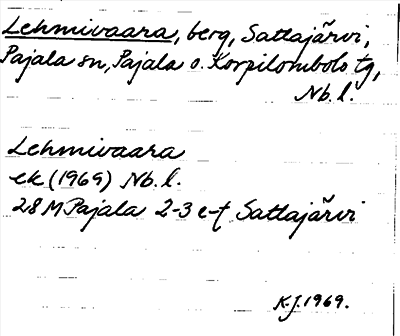 Lehmivaara, berg, Sattajärvi,
Pajala sn, Pajala o. Korpilombolo tg,
Nb. l.
Lehmivaara
ek (1969) Nb. l.
28 M Pajala 2-3 e-f Sattajärvi
K.J. 1969.